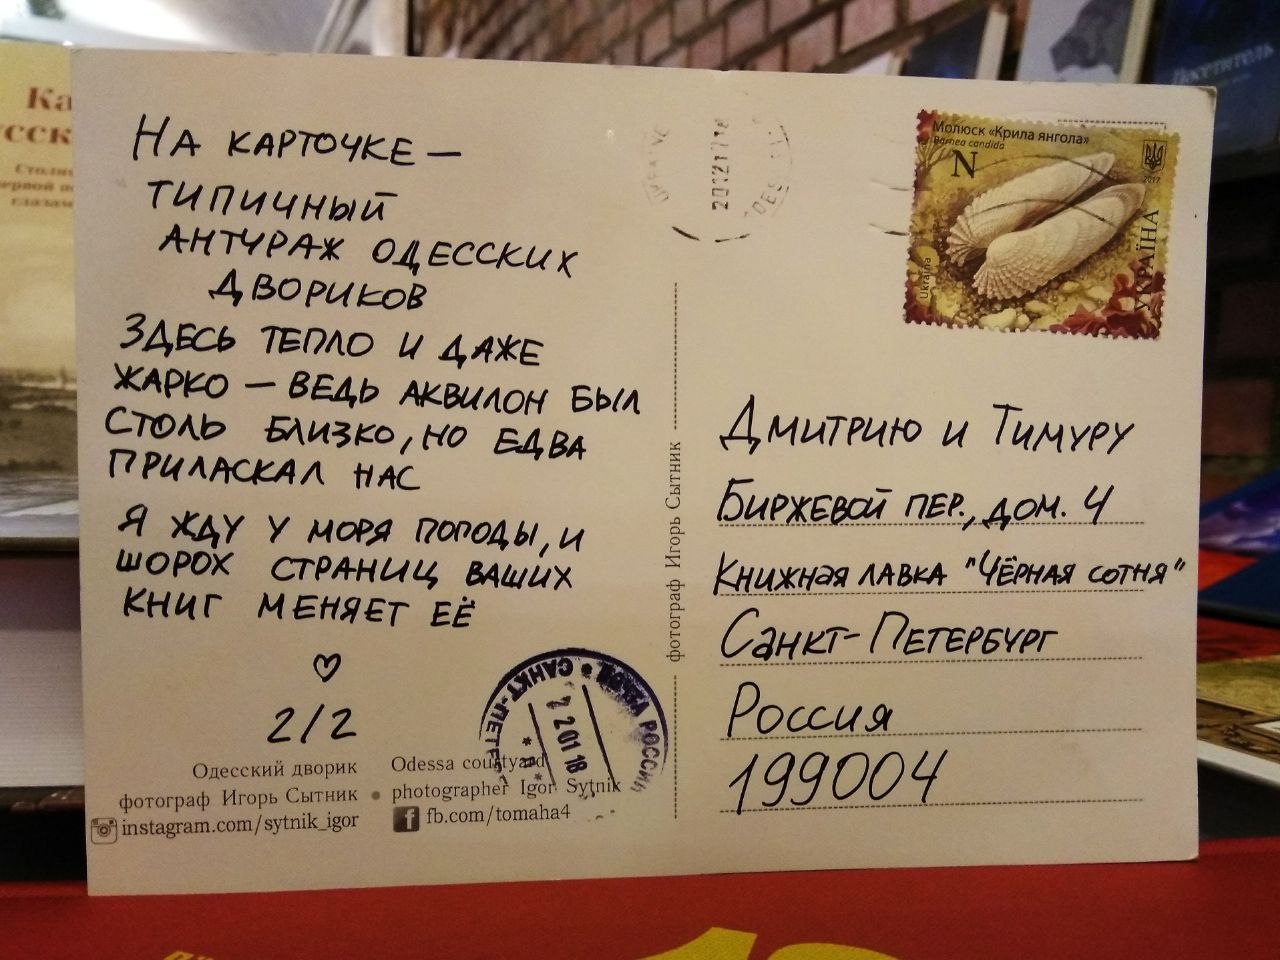 На карточке —
типичный
антураж одесских
двориков
Здесь тепло и даже
жарко — ведь аквилон был
столь близко, но едва
приласкал нас
Я жду у моря погоды, и
шорох страниц ваших
книг меняет её
♡
2/2
Одесский дворик
фотограф Игорь Сытник
instagram.com/sytnik_igor
Odessa courtyard
photographer Igor Sytnik
fb.com/tomaha4
фотограф Игорь Сытник
САНКТ-ПЕТЕР
РОССИИ
2 2 01 18
201217 18
Молюск «Крила янгола»
Barnea candida
N
2017
Ukraina
УКРАЇНА
Дмитрию и Тимуру
Биржевой пер., дом. 4
Книжная лавка "Чёрная сотня"
Санкт-Петербург
Россия
199004
Посетитель